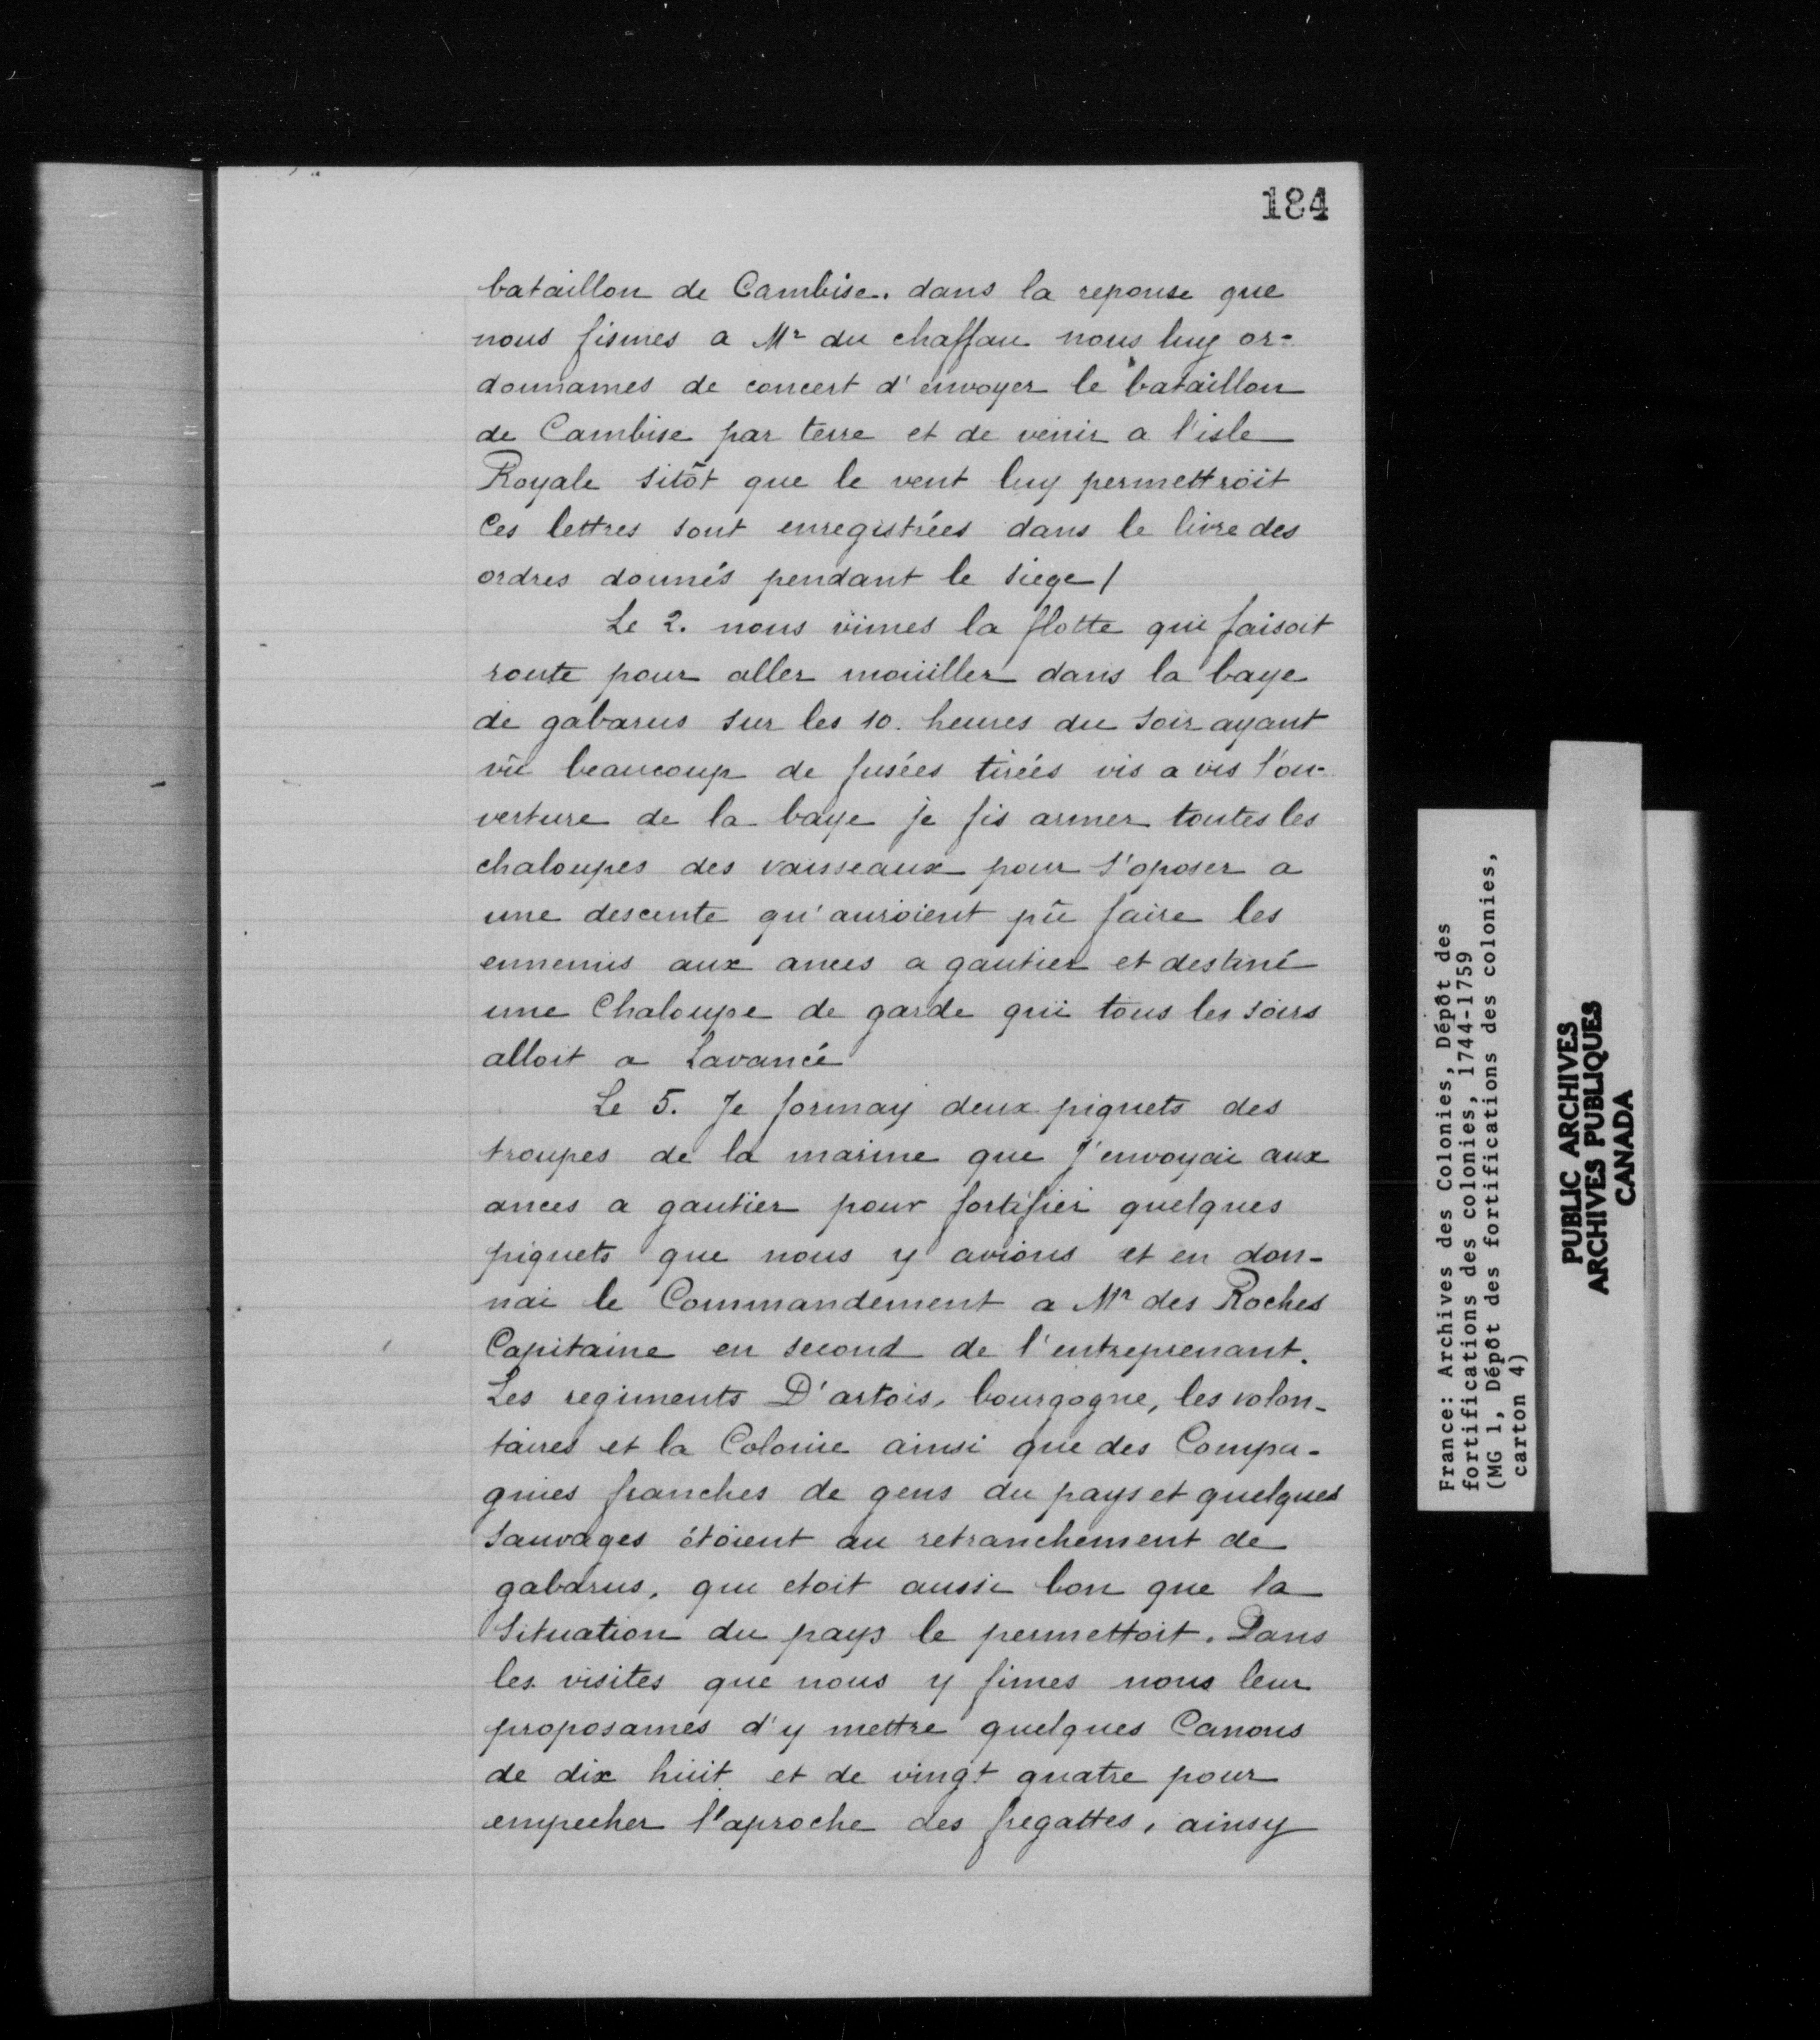 184
bataillon de Cambise. dans la reponse que
nous fismes a Mr du chaffau nous luy or-
donnames de concert d'envoyer le bataillon
de Cambise par terre et de venir a l'isle
Royale sitôt que le vent luy permettroit
Ces lettres sont enregistrées dans le livre des
ordres donnés pendant le siege /
Le 2. nous vimes la flotte qui faisoit
route pour aller moüiller dans la baye
de gabarus sur les 10. heures du soir ayant
vû beaucoup de fusées tirées vis a vis l'ou-
verture de la baye je fis armer toutes les
chaloupes des vaisseaux pour s'oposer a
une descente qu'auroient pû faire les
ennemis aux ances a gautier et destiné
une Chaloupe de garde qui tous les soirs
alloit a Lavancé
Le 5. Je formay deux piquets des
troupes de la marine que J'envoyai aux
ances a gautier pour fortifier quelques
piquets que nous y avions et en don-
nai le Commandement a Mr des Roches
Capitaine en second de l'entreprenant.
Les regiments D'artois, bourgogne, les volon-
taires et la Colonie ainsi que des Compa-
gnies franches de gens du pays et quelques
sauvages étoient au retranchement de
gabarus, qui etoit aussi bon que la
Situation du pays le permettoit. Dans
les visites que nous y fimes nous leur
proposames d'y mettre quelques Canons
de dix huit et de vingt quatre pour
empecher l'aproche des fregattes, ainsy
France: Archives des Colonies, Dépôt des
fortifications des colonies, 1744-1759
(MG 1, Dépôt des fortifications des colonies,
carton 4)
PUBLIC ARCHIVES
ARCHIVES PUBLIQUES
CANADA